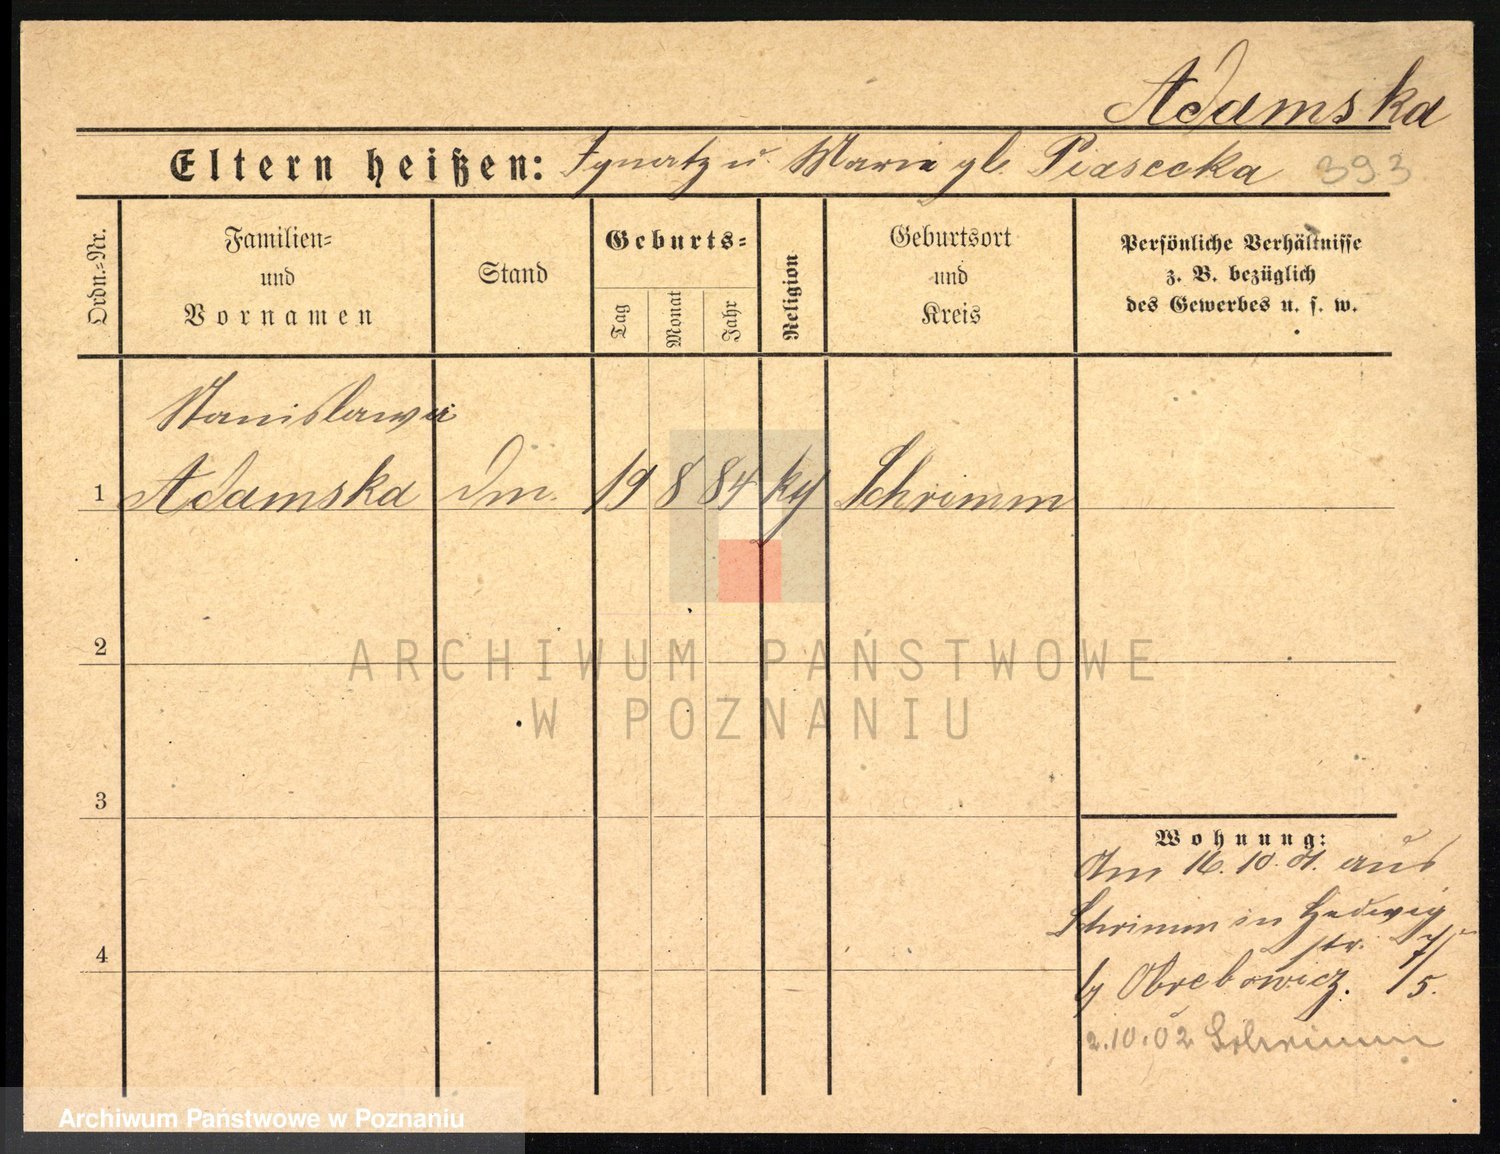 Adamska
Eltern heißen: Ignatz u. Maria gb. Piasecka 393
Ordn.=Nr.
Familien=
und
Vornamen
Stand
Geburts=
Tag
Monat
Jahr
Religion
Geburtsort
und
Kreis
Persönliche Verhältnisse
z. B. bezüglich
des Gewerbes u. s. w.
Stanislawa
1 Adamska dm. 19 8 84 kth Schrimm
2
3
4
Wohnung:
Am 16.10.01. aus
Schrimm in Hedwig
str. 7/5.
b/ Obrebowicz.
2.10.02 Schrimm
ARCHIWUM PAŃSTWOWE
W POZNANIU
Archiwum Państwowe w Poznaniu